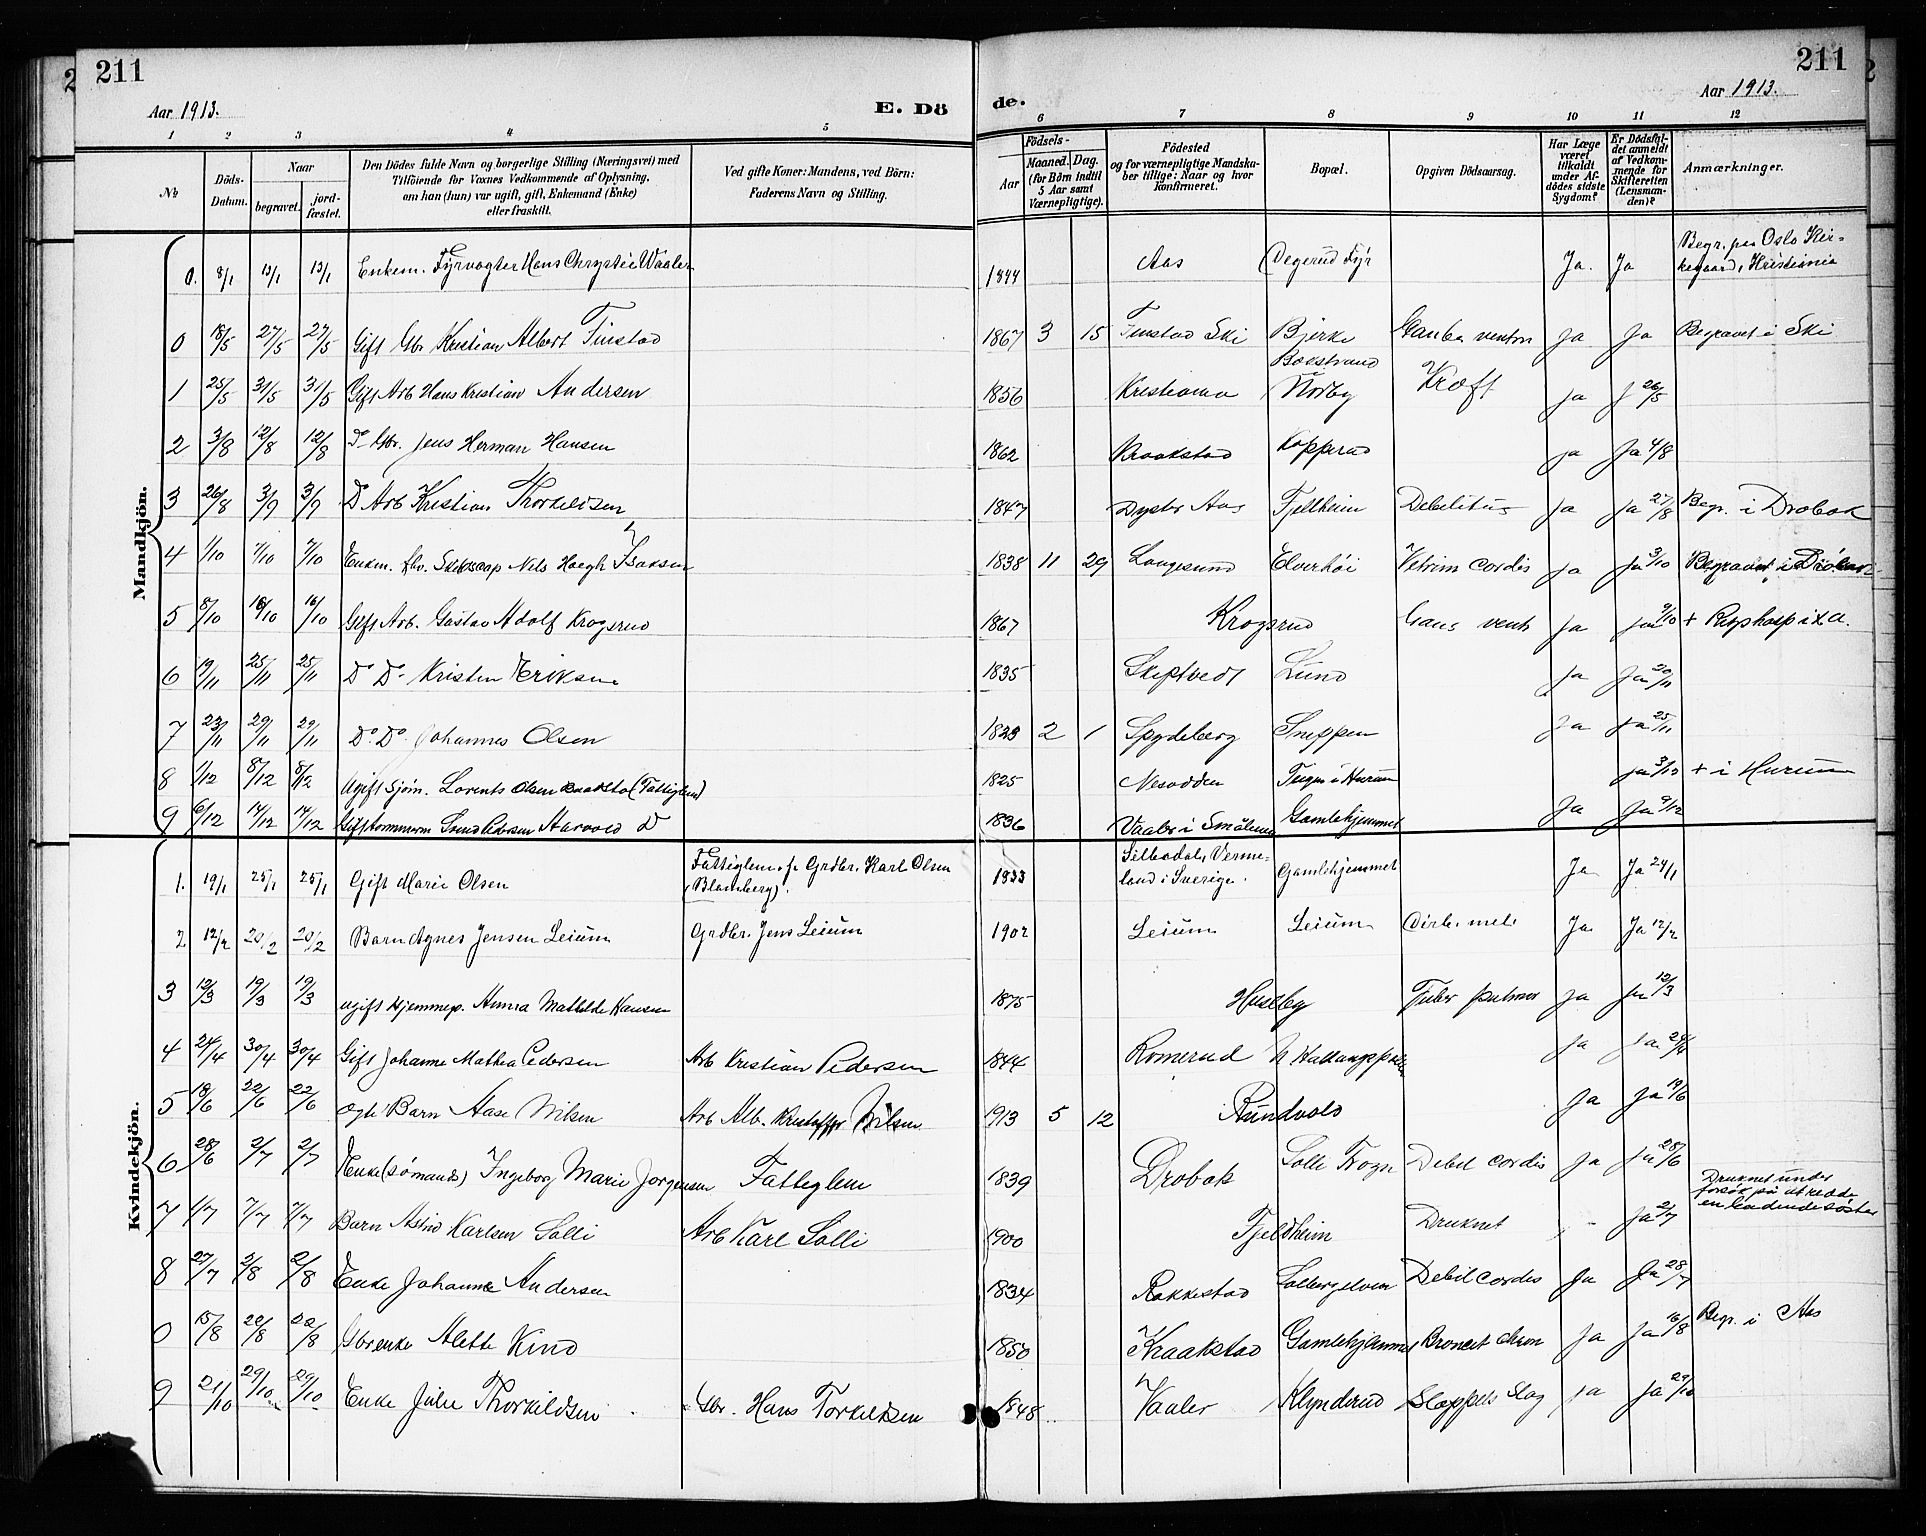 211
211
Aar 1913.
E. Dö
de.
Aar 1913.
1 2 3 4 5 6 7 8 9 10 11 12
№
Döds-
Datum.
Naar
begravet.
jord-
fæstet.
Den Dödes fulde Navn og borgerlige Stilling (Næringsvei) med
Tilföiende for Voxnes Vedkommende af Oplysning,
om han (hun) var ugift, gift, Enkemand (Enke)
eller fraskilt.
Ved gifte Koner: Mandens, ved Börn:
Faderens Navn og Stilling.
Födsels-
Aar
Maaned. Dag.
(for Börn indtil
5 Aar samt
Værnepligtige).
Födested
og for værnepligtige Mandska-
ber tillige: Naar og hvor
konfirmeret.
Bopæl.
Opgiven Dödsaarsag.
Har Læge
været
tilkaldt
under Af-
dödes sidste
Sygdom?
Er Dödsfal-
det anmeldt
af Vedkom-
mende for
Skifteretten
(Lensman-
den)?
Anmærkninger.
Mandkjön.
0. 8/1 13/1 13/1 Enkem. Fyrvogter Hans Chrystie Waaler 1844 Aas Degerud Fyr Ja. Ja Begr. paa Oslo Kir-
kegaard, Kristiania
0 18/5 27/5 27/5 Gift Gbr Kristian Albert Finstad 1867 3 15 Finstad Ski Bjerke Ja Ja Begravet i Ski
1 25/5 31/5 31/5 Gift Arb Hans Kristian Andersen 1856 Kristiania Norby Kræft Ja J 26/5
2 3/8 12/8 12/8 Do Gbr. Jens Herman Hansen 1862 Kraakstad Kopperud ja Ja 4/8
3 26/8 3/9 3/9 Do Arb Kristian Thorkildsen 1847 Dyster Aas Fjellheim Debilitas Ja Ja 27/8 Begr. i Drøbak
4 1/10 7/10 7/10 Enkm. Nels Høegh Isaksen 1838 11 29 Langesund Elverhöi cordis ja Ja 3/10 Begravet i Dröbak
5 8/10 16/10 16/10 Gift Arb. Gustav Adolf Krogsrud 1867 Krogsrud Ja Ja 9/10 +
6 19/11 25/11 25/11 Do Do Kristen Eriksen 1835 Skiptvedt Lund Ja Ja 20/11
7 23/11 29/11 29/11 Do. Do. Johannes Olsen 1829 2 1 Spydeberg Snippen Ja Ja 25/11
8 1/12 8/12 8/12 Ugift Sjöm. Lorents Olsen (Fattiglem) 1825 Nesodden i Hurum Ja 3/12 + i Hurum
9 6/12 14/12 14/12 Gift Svend Pedersen Aarvold Do 1836 Vaaler i Smålenene Gamlehjemmet Ja Ja 9/12
Kvindekjön.
1. 19/1 25/1 25/1 Gift Marie Olsen Fattiglem, f. Grdbr. Karl Olsen
(Blomberg). 1833 Silbodal, Verme-
land i Sverige. Gamlehjemmet Ja Ja 24/1
2 12/2 20/2 20/2 Barn Agnes Jensen Leium Grdbr. Jens Leium 1902 Leium Leium Diab. mel. Ja Ja 12/2
3 12/3 19/3 19/3 ugift Hjemmep. Anna Mathilde Hansen 1875 Huseby Tuber pulmon Ja Ja 12/3
4 24/4 30/4 30/4 Gift Johanne Mathea Pedersen Arb Kristian Pedersen 1844 Romerud N Hallangspollen Ja Ja 24/4
5 18/6 22/6 22/6 Ægte Barn Aase Nilsen Arb Alb. Kristoffer Nilsen 1913 5 12 Rundvold Ja Ja 19/6
6 28/6 2/7 2/7 Enke (sømands) Ingeborg Marie Jorgensen Fattiglem 1839 Drobak Solli Frogn Debil cordis Ja Ja 28/6
7 1/7 7/7 7/7 Barn Astrid Karlsen Solli Arb Karl Solli 1900 Fjeldheim Druknet Ja 2/7 Druknet under
forsök på at redde
en badende søster
8 27/7 2/8 2/8 Enke Johanne Andersen 1834 Rakkestad Solbergelven Debil cordis Ja Ja 28/7
0 15/8 22/8 22/8 Gbrenke Alette Kind 1850 Kraakstad Gamlehjemmet Broncit chron Ja Ja 16/8 Begr. i Aas
9 21/10 29/10 29/10 Enke Julie Thorkildsen Gbr. Hans Torkildsen 1848 Vaaler Klynderud Slag Ja Ja 29/10